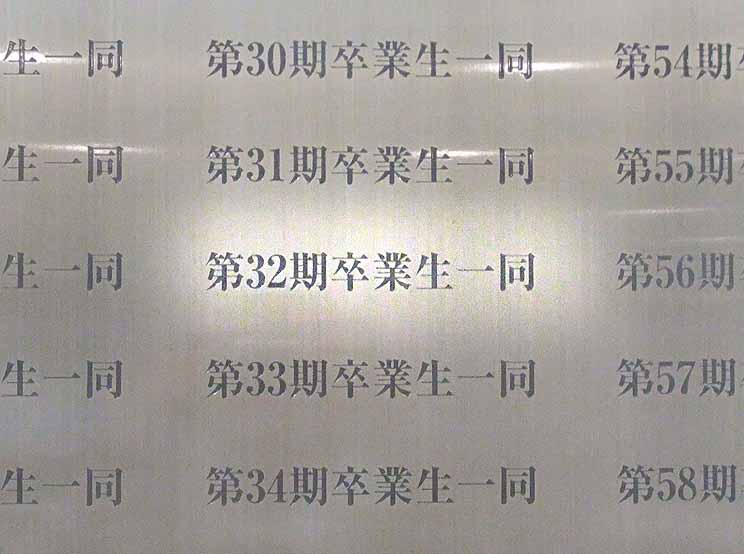 生一同 第30期卒業生一同 第54期
生一同 第31期卒業生一同 第55期
生一同 第32期卒業生一同 第56期
生一同 第33期卒業生一同 第57期
生一同 第34期卒業生一同 第58期